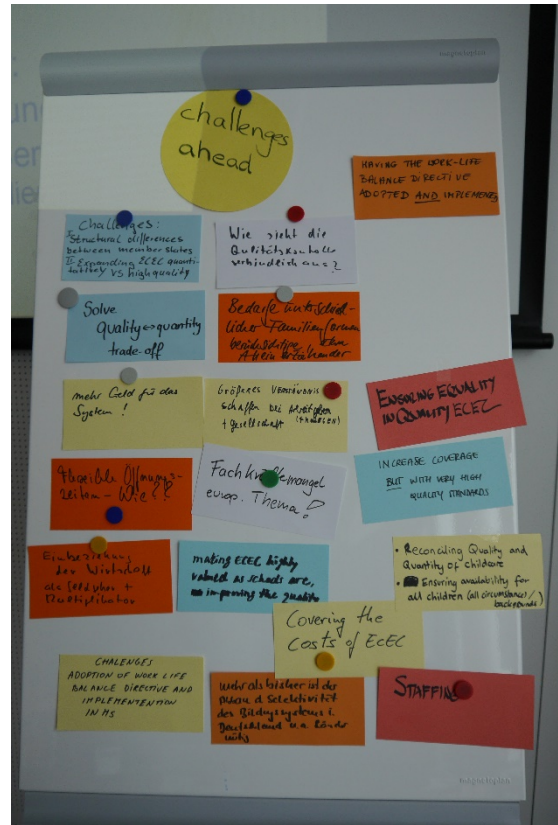 magnetoplan
challenges
ahead
HAVING THE WORK-LIFE
BALANCE DIRECTIVE
ADOPTED AND IMPLEMENTED
Challenges:
I Structural differences
between member states
II Expanding ECEC quanti-
tatively vs high quality
Wie sieht die
Qualitätskontrolle
verbindlich aus?
Solve
quality ↔ quantity
trade-off
Bedarfe unterschied-
licher Familienformen
Alleinerziehender
mehr Geld für das
System!
Größeres Verständnis
schaffen bei Arbeitgebern
+ Gesellschaft
ENSURING EQUALITY
IN QUALITY ECEC
Flexible Öffnungs-
zeiten - Wie??
Fachkräftemangel
europ. Thema!
INCREASE COVERAGE
BUT WITH VERY HIGH
QUALITY STANDARDS
Einbeziehung
der Wirtschaft
als Geldgeber +
Multiplikator
making ECEC highly
valued as schools are,
improving the quality
• Reconciling Quality and
Quantity of childcare
• Ensuring availability for
all children (all circumstances/
backgrounds)
Covering the
costs of ECEC
CHALENGES
ADOPTION OF WORK LIFE
BALANCE DIRECTIVE AND
IMPLEMENTENTION
IN MS
Mehr als bisher ist der
Abbau d. Selektivität
des Bildungssystems i.
Deutschland u.a. Länder
nötig
STAFFING
magnetoplan